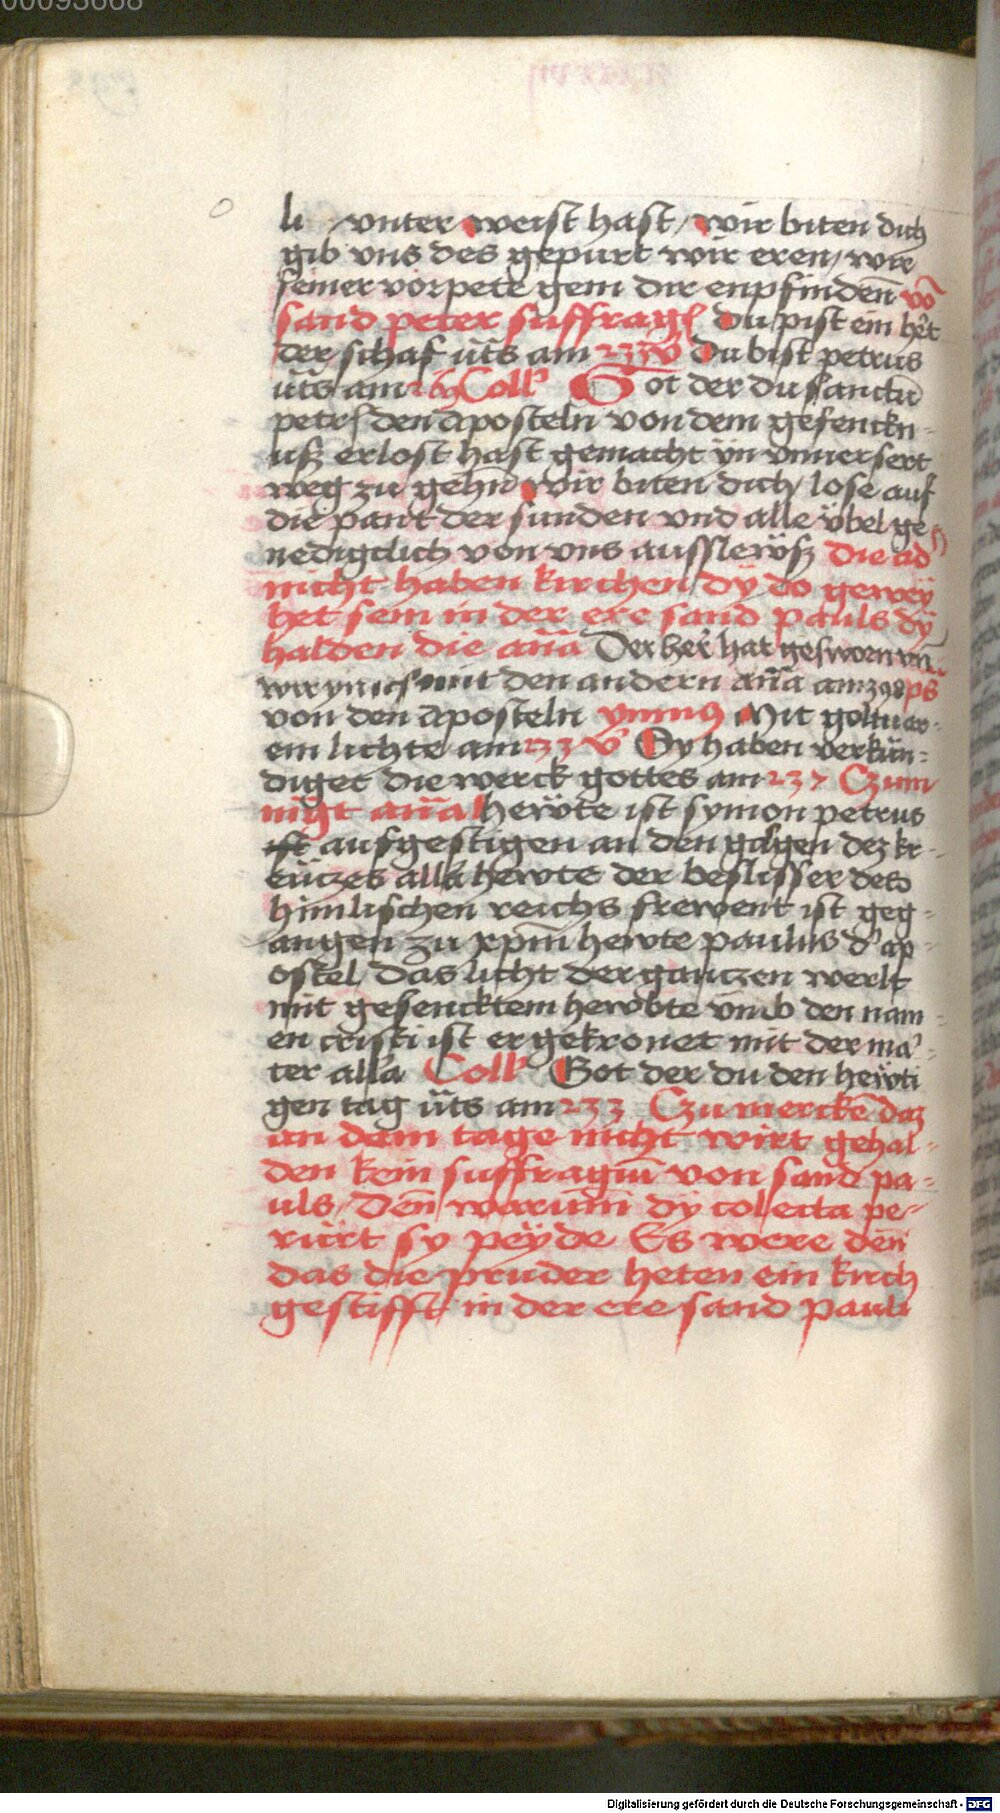 00093668
li vnter weist hast / wir biten dich
gib vns des gepurt wir eren / wir
seiner vorpete gein dir enpfinden̄ vō
sand peter suffrag du pist ein hēt
der schaf ūts am 233 v̄ Du bist petrus
ūts am 269 Coll' Got der du sanctū
petrū den aposteln von dem gefenckn-
usz erlost hast gemacht yn vnuersert
weg zu gehn̄ wir biten dich / lose auf
die pant der sunden vnd alle ÿbel ge
nedigclich von vns aussleẅsz die ab
nicht haben kirchen / dÿ do gewey
het sein in der ere sand pauls dÿ
halden die an̄a Der her hat gesworn vn̄
mit den andern an̄a am 398 ps̄
von den aposteln ymn9 Mit goltu er-
em lichte am 233 v̄ Sy haben verkün-
diget die werck gottes am 237 Czum
mgt an̄a heẅte ist symon petrus
ist aufgestigen an den galgen dez kr-
eüczes all'a hewte der beslisser des
himlischen reichs frewent ist geg-
angen zu xp̄m hewte paulus d' ap-
ostel das licht der ganczen werlt
mit gesencktem hewbte vmb den nam-
en cristi ist er gekronet mit der ma'-
ter all'a Coll' Got der du den heẅti
gen tag ūts am 233 Czu merckē daz
an dem tage nicht wirt gehal-
den kein suffragiū von sand pa-
uls / Den̄ warum̄ dy colecta pe-
rürt sy peÿde Es were den̄
das die pruder heten ein kirch
gestifft in der ere sand pauls
Digitalisierung gefördert durch die Deutsche Forschungsgemeinschaft - DFG